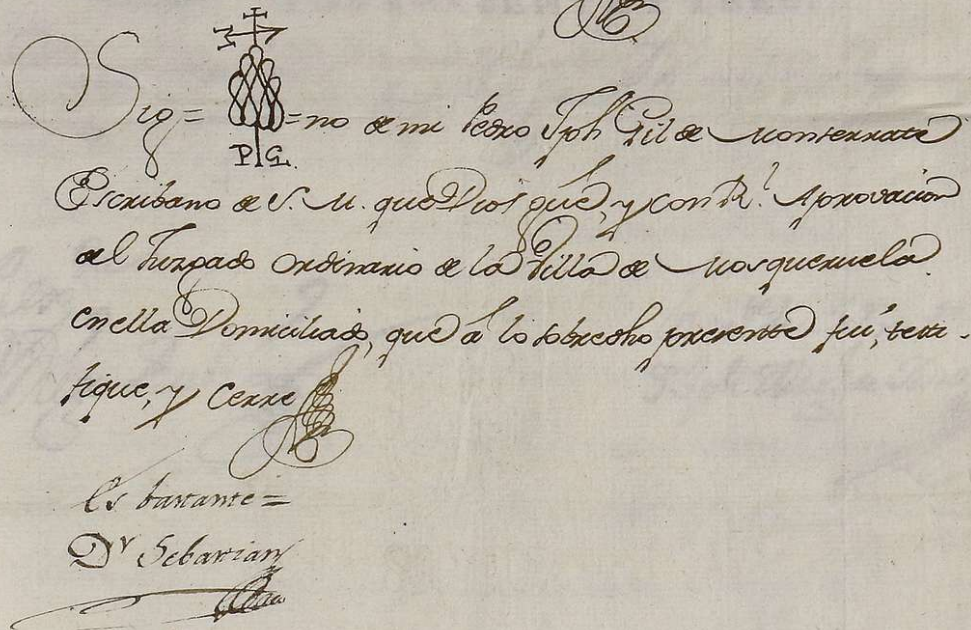 Sig= =no de mi Pedro Jph Gil de Monserrate
P G.
Escribano de S. M. que Dios gue, y con Rl. Aprovacion
del Juzgado ordinario de la Villa de Mosqueruela
en ella Domiciliado, que a lo sobredho presente fui, testi-
fique, y Cerre
Es bastante=
Dr Sebastian